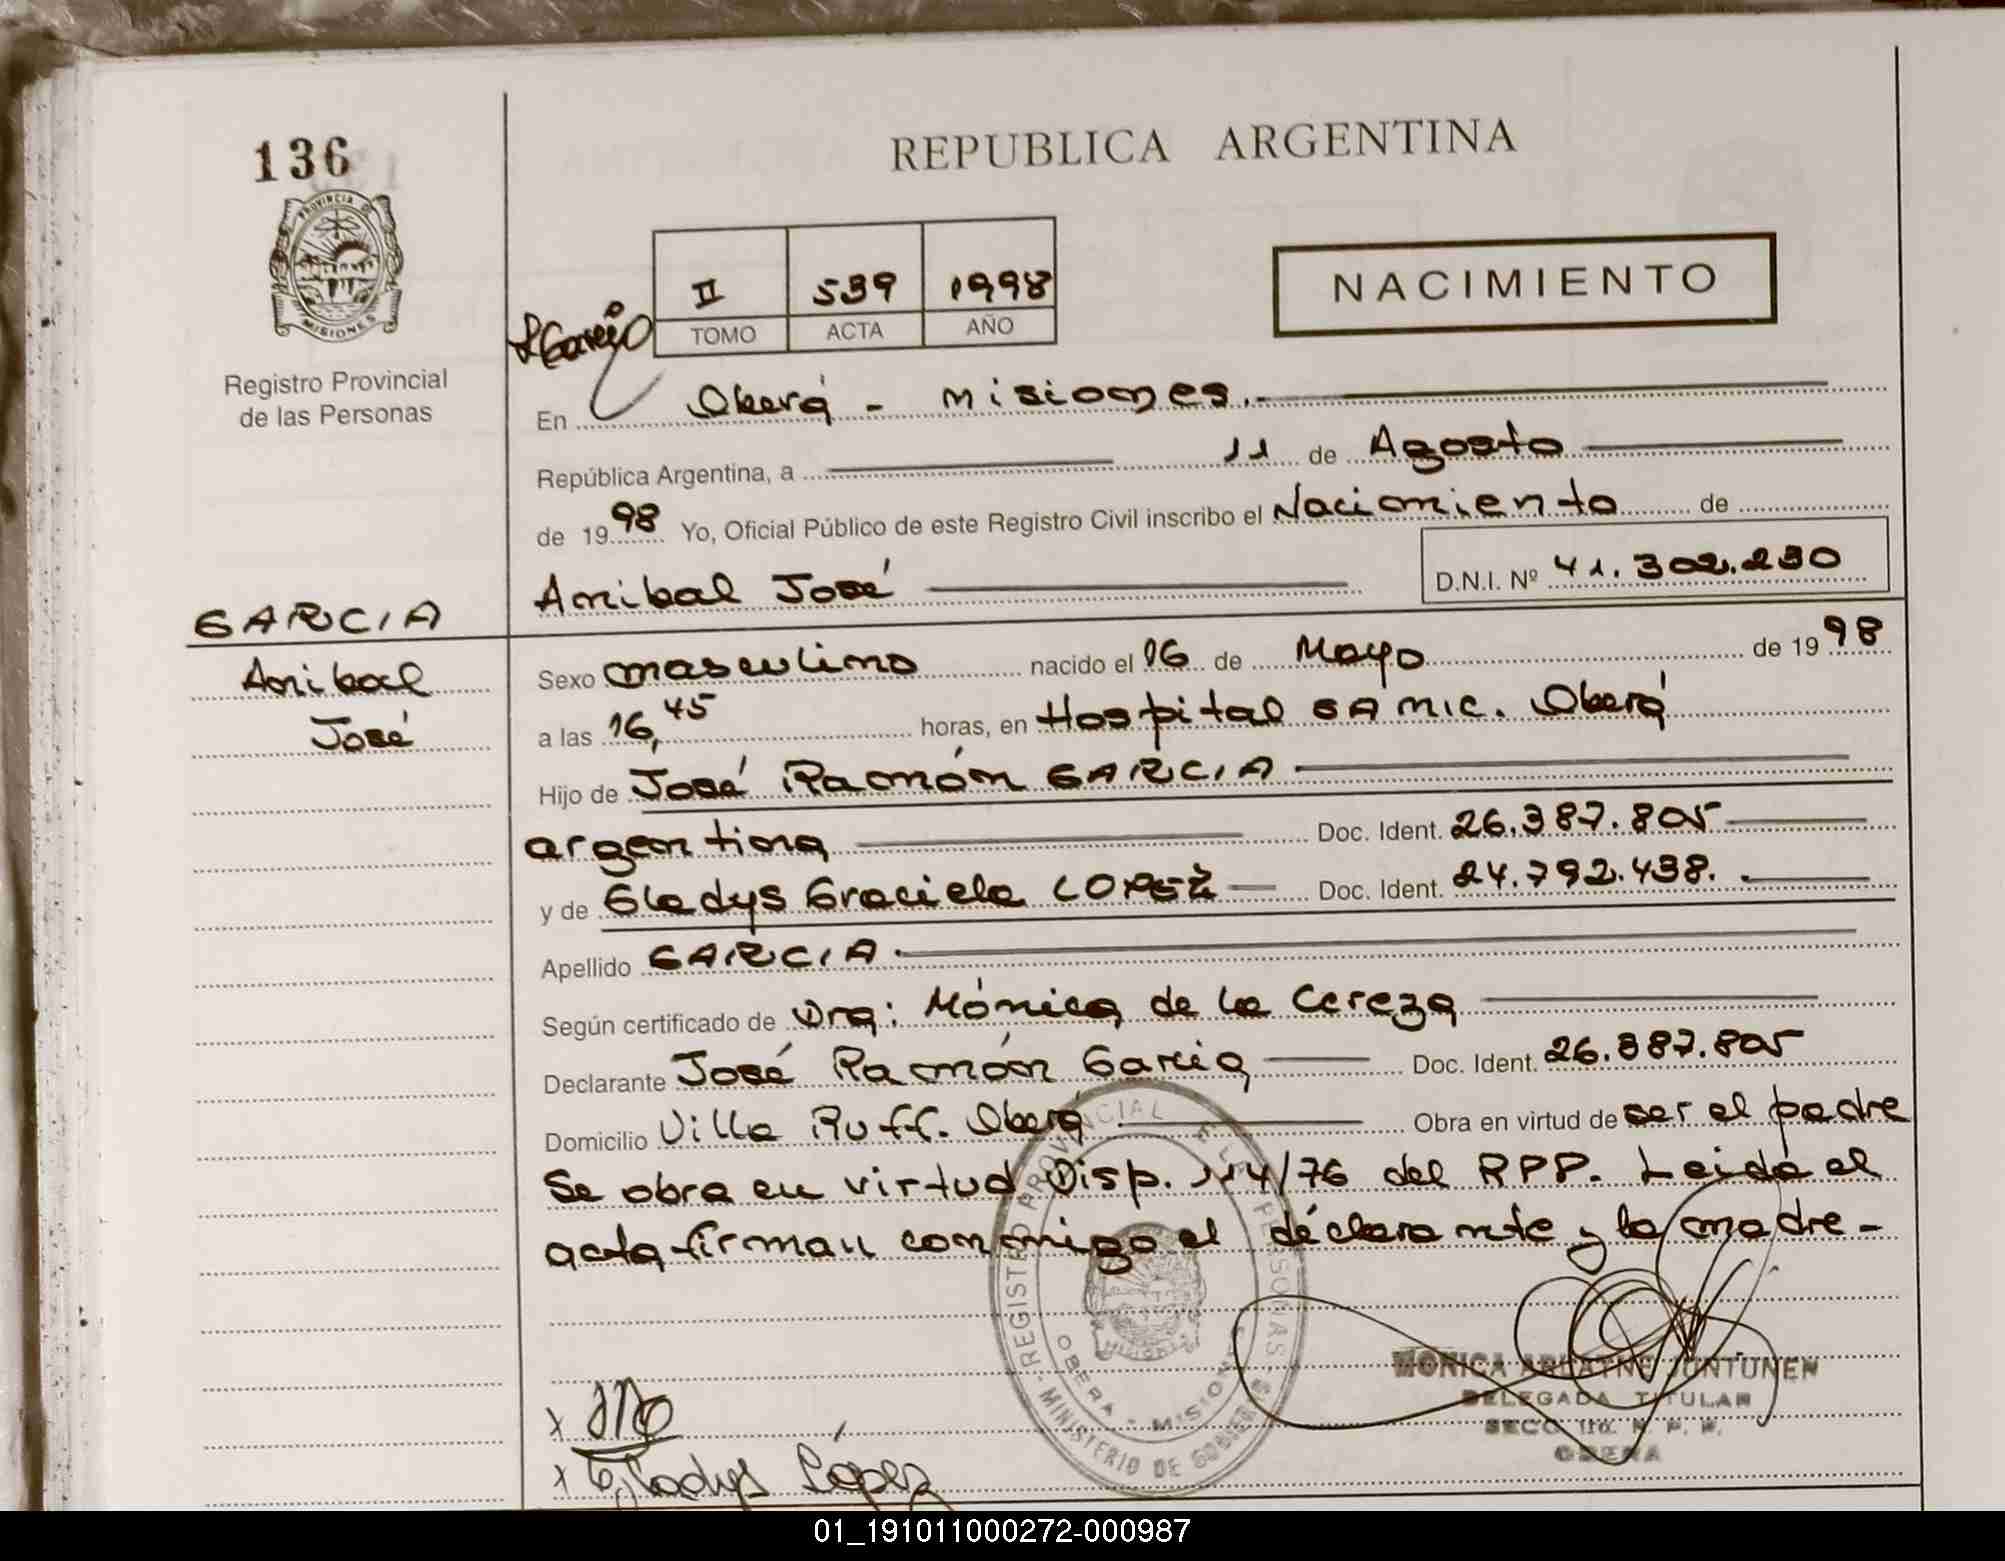 136
PROVINCIA DE
MISIONES
Registro Provincial
de las Personas
REPUBLICA ARGENTINA
II 539 1998
TOMO ACTA AÑO
NACIMIENTO
En Oberá - Misiones.
República Argentina, a 11 de Agosto
de 1998 Yo, Oficial Público de este Registro Civil inscribo el Nacimiento de
Anibal José D.N.I. Nº 41.302.230
GARCIA
Anibal
José
Sexo masculino nacido el 16 de Mayo de 1998
a las 16,45 horas, en Hospital SAMIC. Oberá
Hijo de José Ramón GARCIA
argentina Doc. Ident. 26.387.805
y de Gladys Graciela LOPEZ Doc. Ident. 24.792.438.
Apellido GARCIA
Según certificado de Dra: Mónica de la Cereza
Declarante José Ramón Garcia Doc. Ident. 26.387.805
Domicilio Villa Ruff. Oberá Obra en virtud de ser el padre
Se obra en virtud Disp. 114/76 del RPP. Leida el
acta firman conmigo el declarante y la madre-
REGISTRO PROVINCIAL DE LAS PERSONAS
MINISTERIO DE GOBIERNO
OBERA - MISIONES
MONICA JUNTUNEN
DELEGADA TITULAR
SECC. R. P. P.
OBERA
x
x Gladys López
01_191011000272-000987